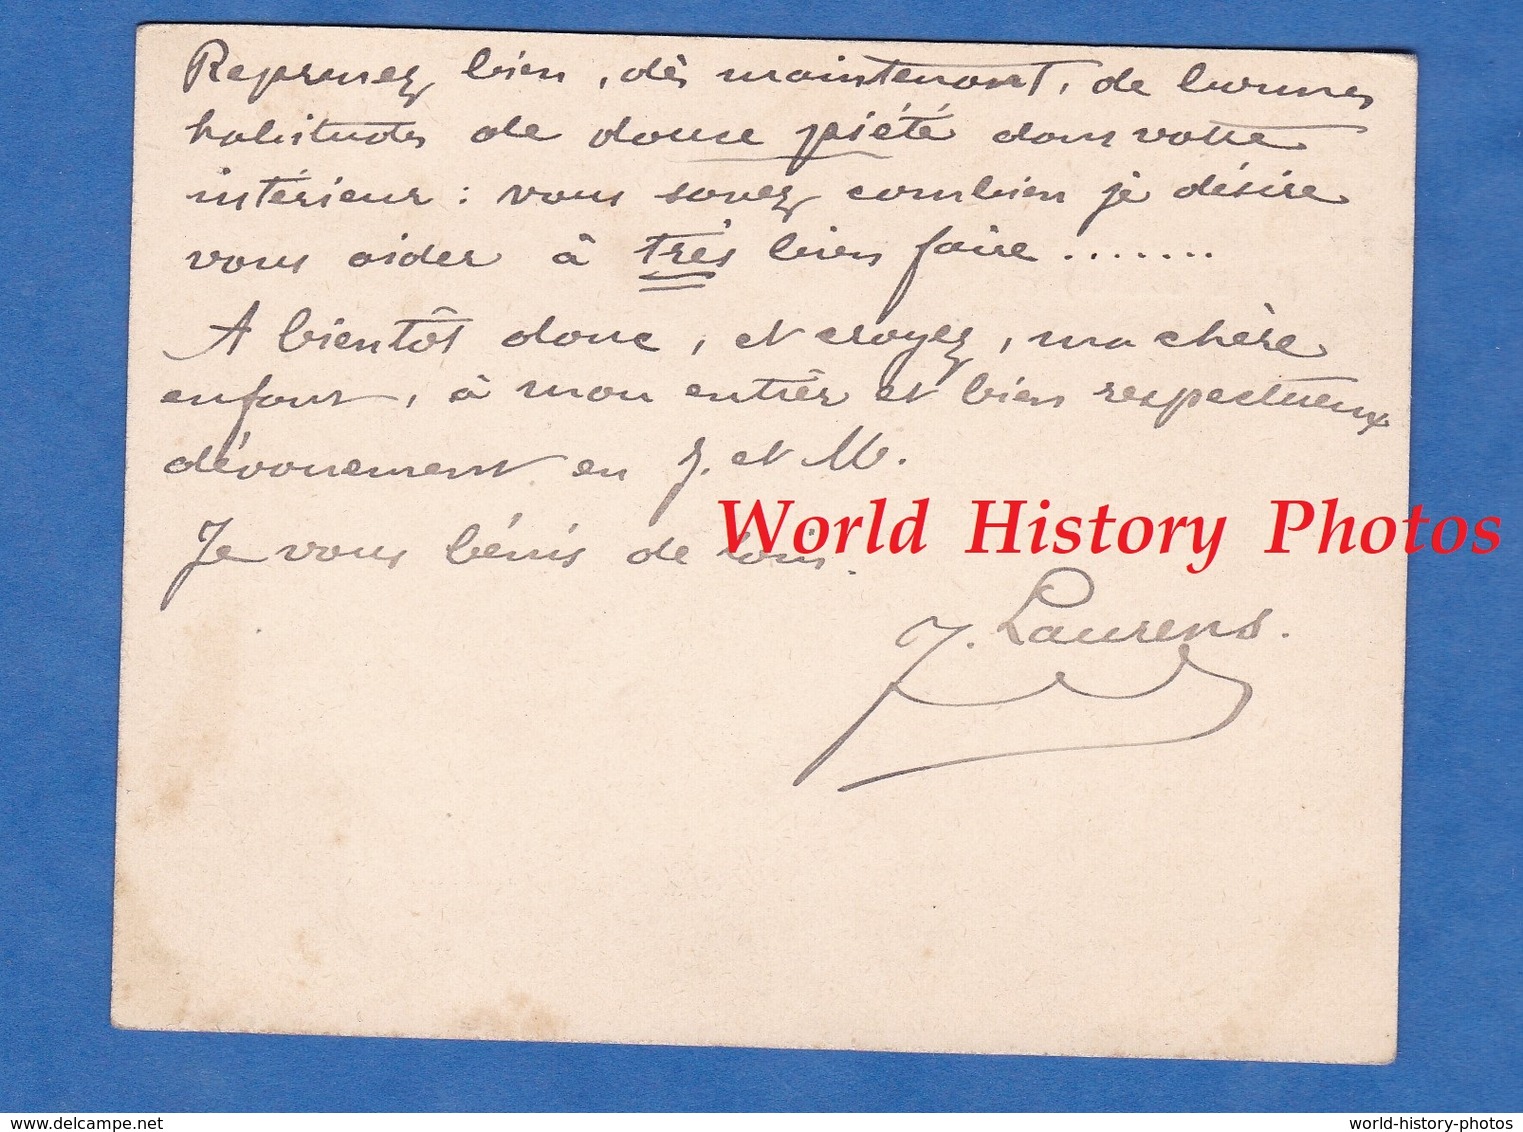 Reprenez bien, dès maintenant, de bonnes
habitudes de douce piété dans votre
intérieur : vous savez combien je désire
vous aider à très bien faire .......
A bientôt donc, et croyez, ma chère
enfant, à mon entier et bien respectueux
dévouement en J. et M.
Je vous bénis de loin.
World History Photos
J. Laurens.
www.delcampe.net
world-history-photos